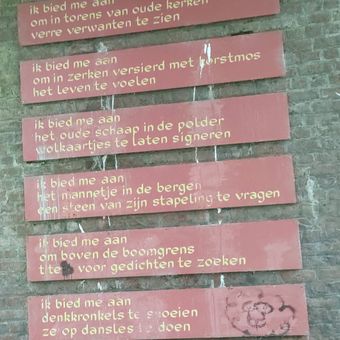 ik bied me aan
om in torens van oude kerken
verre verwanten te zien
ik bied me aan
om in zerken versierd met korstmos
het leven te voelen
ik bied me aan
het oude schaap in de polder
wolkaartjes te laten signeren
ik bied me aan
het mannetje in de bergen
een steen van zijn stapeling te vragen
ik bied me aan
om boven de boomgrens
titels voor gedichten te zoeken
ik bied me aan
denkkronkels te snoeien
ze op dansles te doen